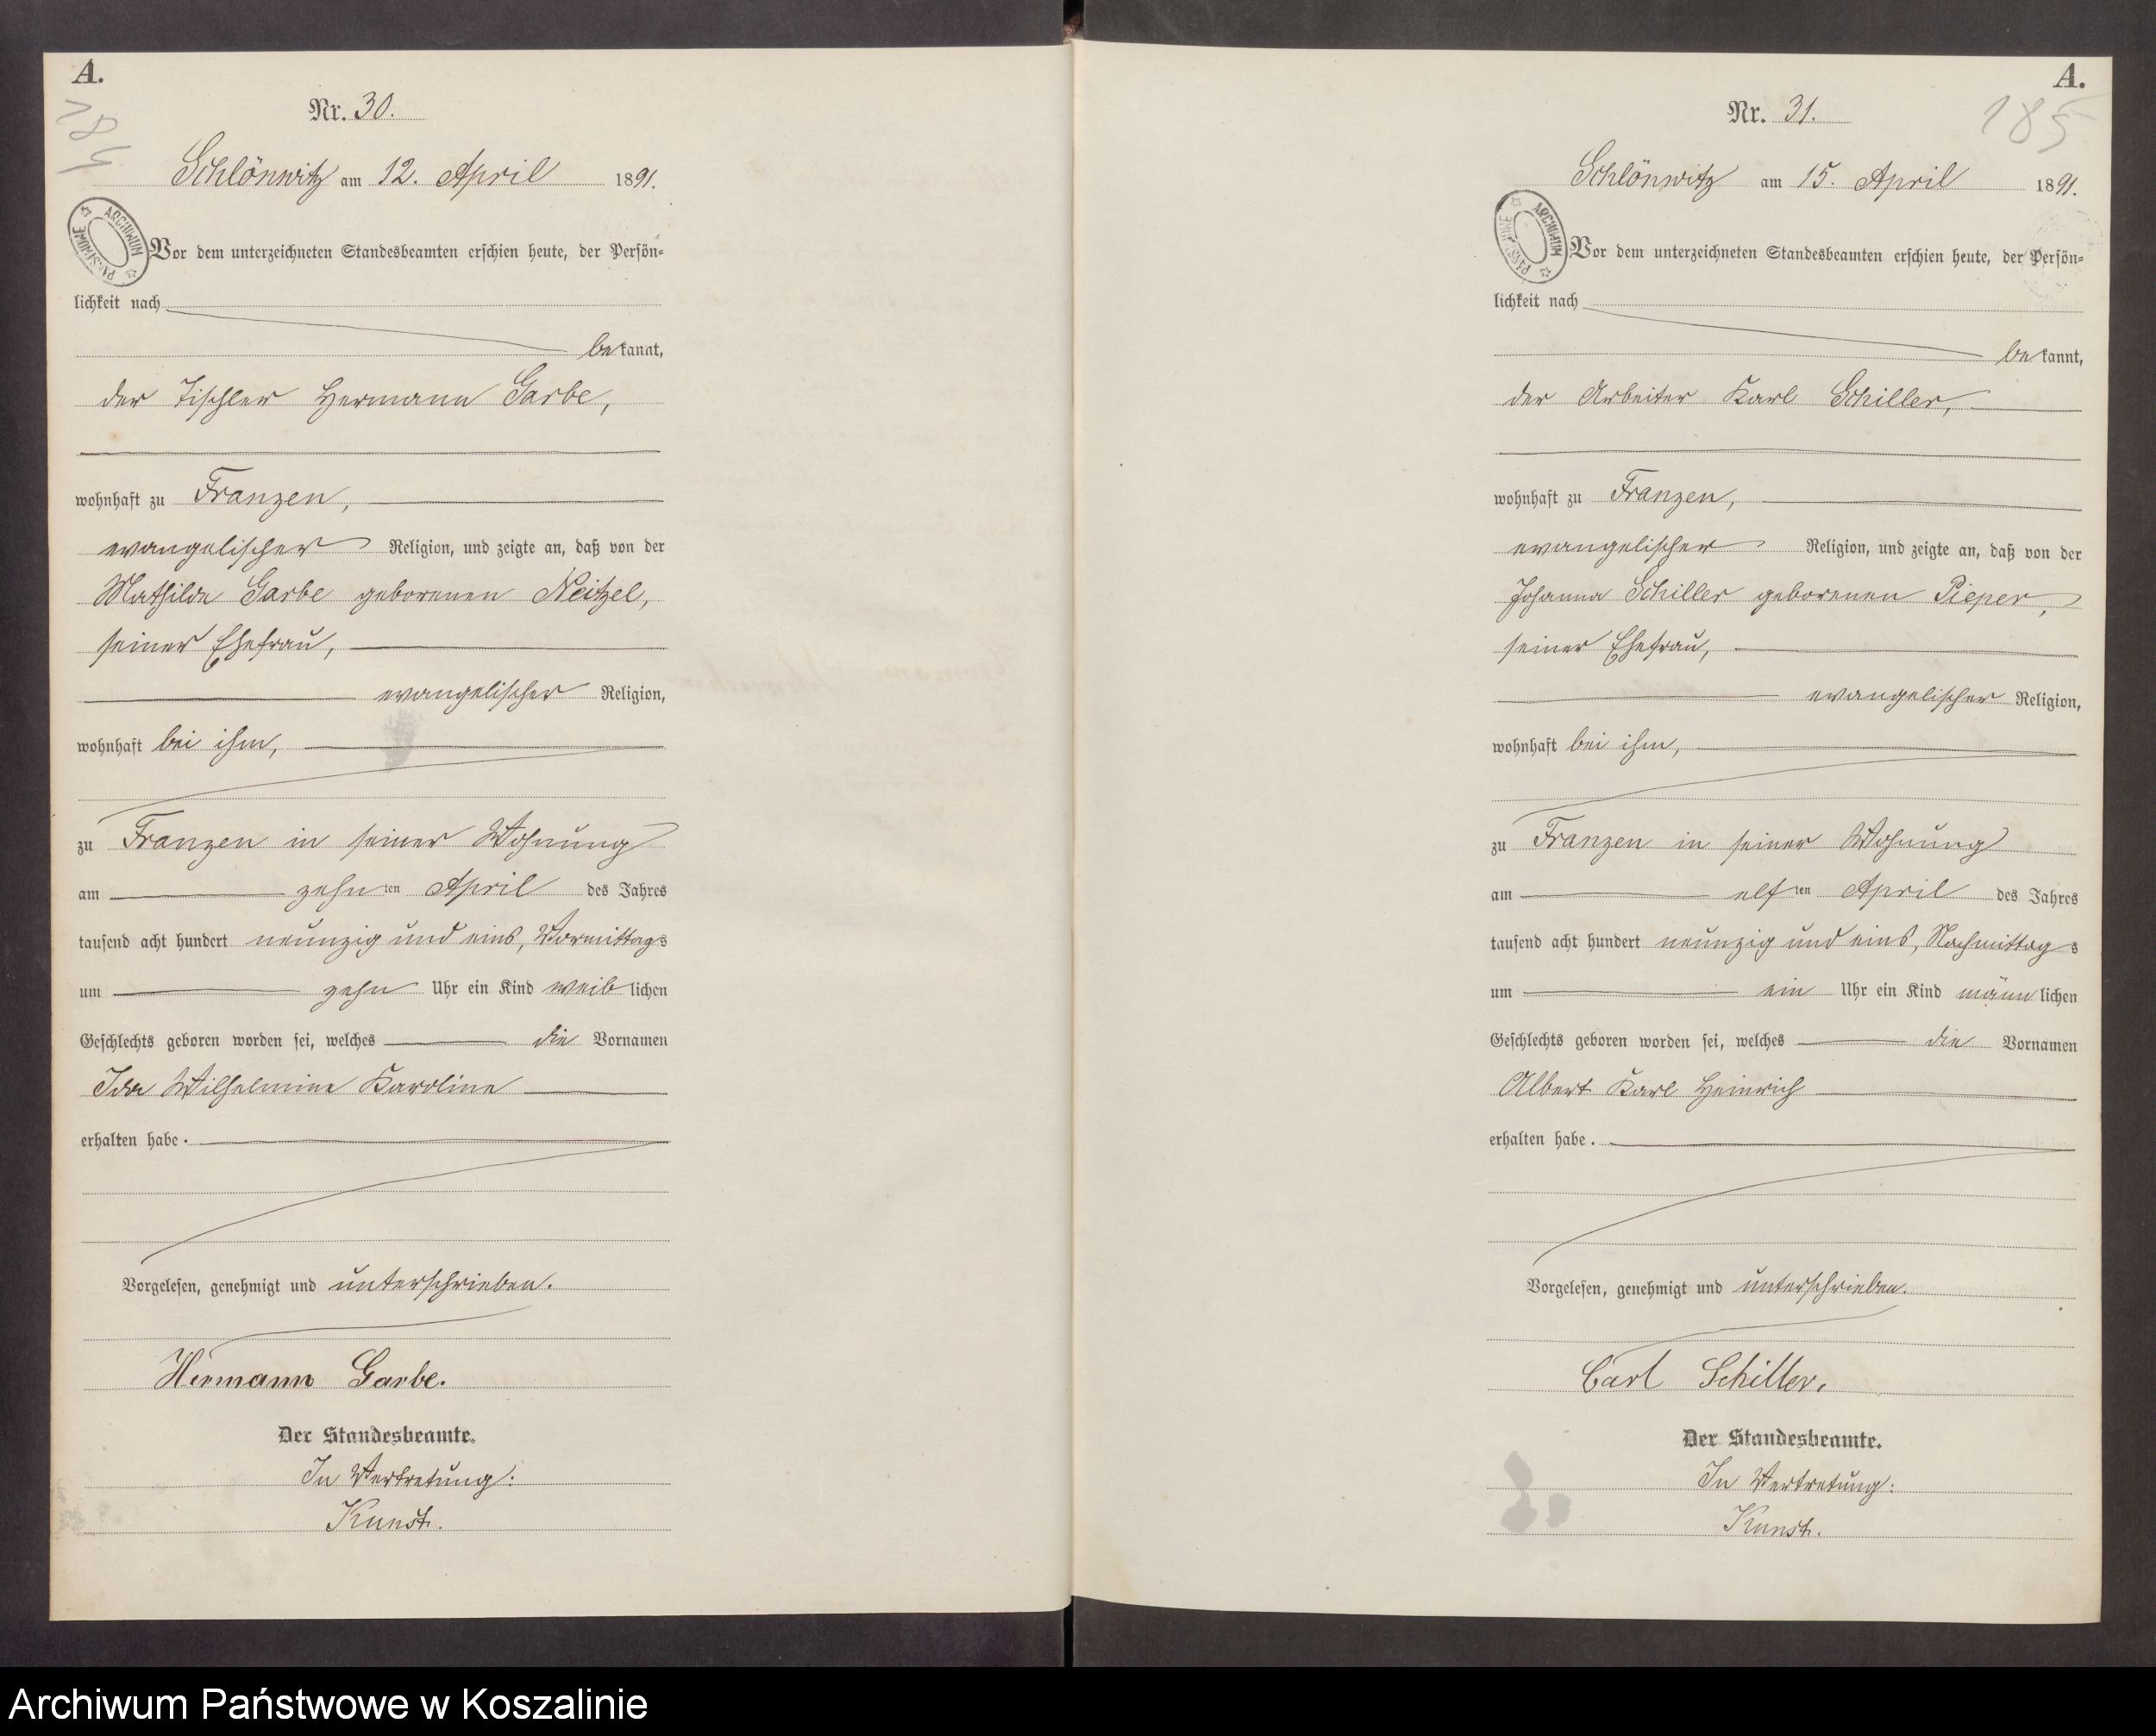 A.
184
Nr. 30.
Schlönwitz am 12. April 1891.
ARCHIWUM PAŃSTWOWE
Vor dem unterzeichneten Standesbeamten erschien heute, der Persön-
lichkeit nach
be kannt,
der Tischler Hermann Garbe,
wohnhaft zu Franzen,
evangelischer Religion, und zeigte an, daß von der
Mathilde Garbe geborenen Neitzel,
seiner Ehefrau,
evangelischer Religion,
wohnhaft bei ihm,
zu Franzen in seiner Wohnung
am zehn ten April des Jahres
tausend acht hundert neunzig und eins, Vormittags
um zehn Uhr ein Kind weib lichen
Geschlechts geboren worden sei, welches die Vornamen
Ida Wilhelmine Karoline
erhalten habe.
Vorgelesen, genehmigt und unterschrieben.
Hermann Garbe.
Der Standesbeamte.
In Vertretung:
Kunst.
A.
185
Nr. 31.
Schlönwitz am 15. April 1891.
ARCHIWUM PAŃSTWOWE
Vor dem unterzeichneten Standesbeamten erschien heute, der Persön-
lichkeit nach
be kannt,
der Arbeiter Karl Schiller,
wohnhaft zu Franzen,
evangelischer Religion, und zeigte an, daß von der
Johanna Schiller geborenen Pieper,
seiner Ehefrau,
evangelischer Religion,
wohnhaft bei ihm,
zu Franzen in seiner Wohnung
am elf ten April des Jahres
tausend acht hundert neunzig und eins, Nachmittags
um ein Uhr ein Kind männ lichen
Geschlechts geboren worden sei, welches die Vornamen
Albert Karl Heinrich
erhalten habe.
Vorgelesen, genehmigt und unterschrieben.
Carl Schiller.
Der Standesbeamte.
In Vertretung:
Kunst.
Archiwum Państwowe w Koszalinie